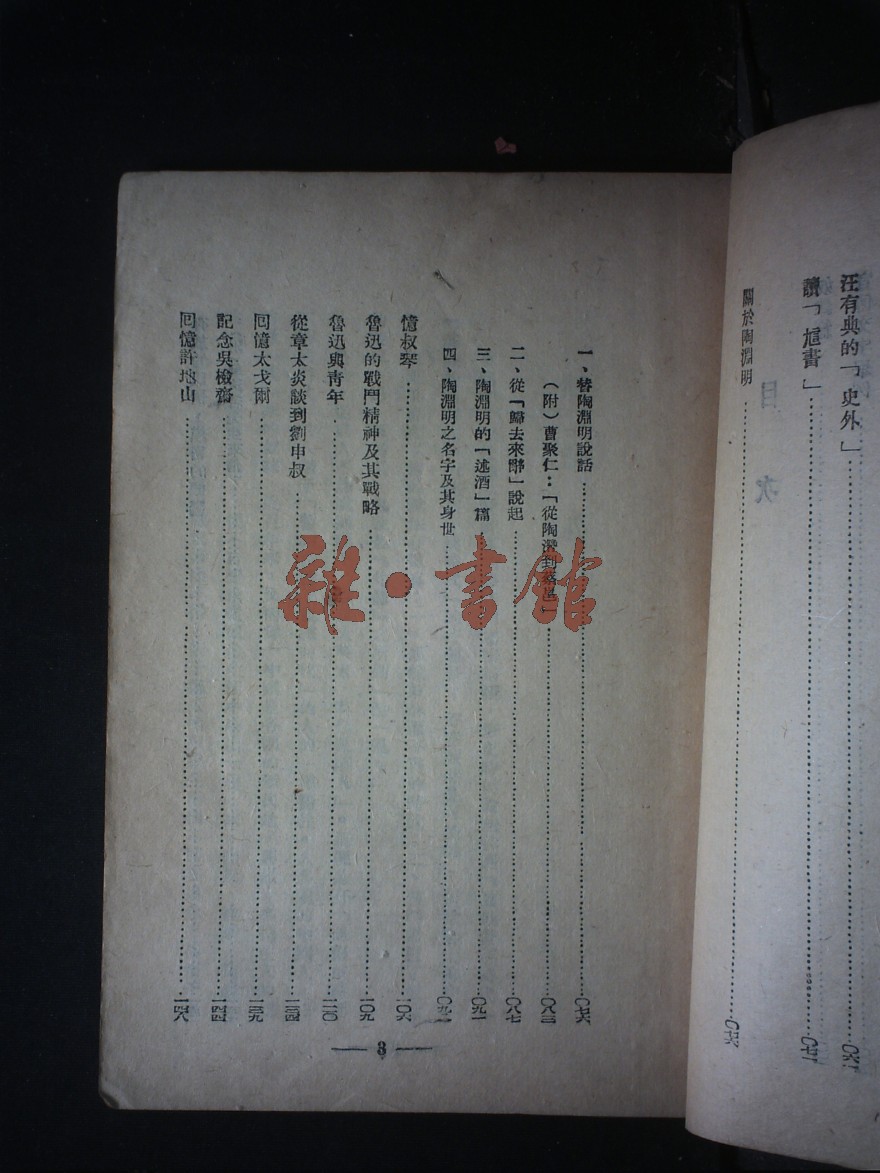 汪有典的「史外」
讀「訄書」
關於陶淵明
一、替陶淵明說話……〇七六
（附）曹聚仁：「從陶潛到蔡邕」……〇八三
二、從「歸去來辭」說起……〇八七
三、陶淵明的「述酒」篇……〇九一
四、陶淵明之名字及其身世
憶叔琴……一〇六
魯迅的戰鬥精神及其戰略……一〇九
魯迅與青年……一二〇
從章太炎談到劉申叔
回憶太戈爾……一三九
記念吳檢齋……一四四
回憶許地山……一四八
— 3 —
雜·書館